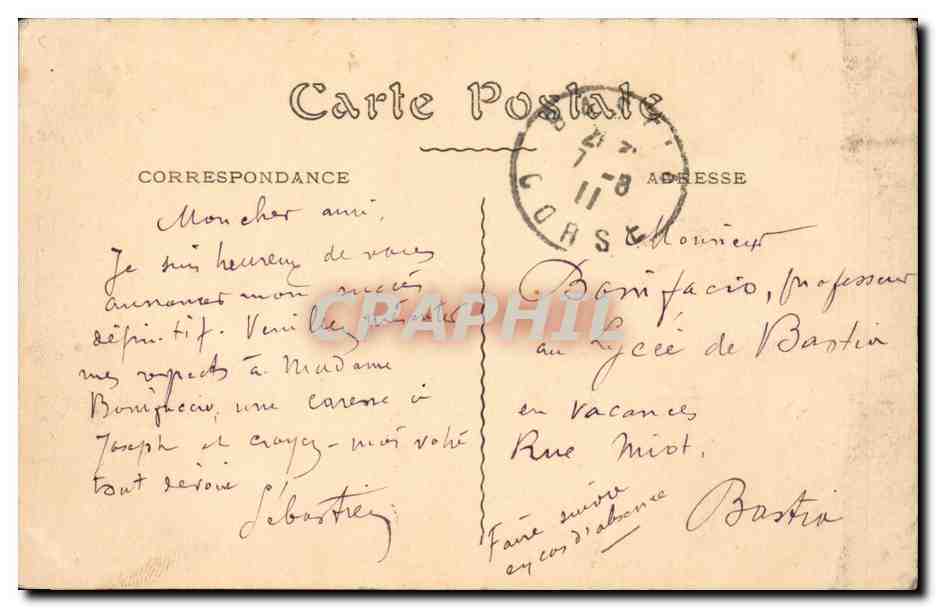 Carte Postale
CORRESPONDANCE
Mon cher ami,
Je suis heureux de vous
annoncer mon succès
définitif. Veuillez présenter
mes respects à Madame
Bonifacio, une caresse à
Joseph et croyez-moi votre
tout dévoué
Sébastien
BASTIA
7 -8
11
CORSE
ADRESSE
Monsieur
Bonifacio, professeur
au Lycée de Bastia
en vacances
Rue Miot.
Bastia
Faire suivre
en cas d'absence
CPAPHIL